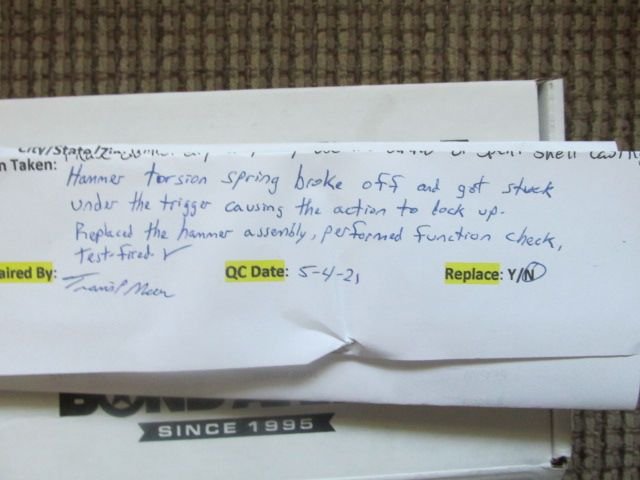 City/State/
or spent shell casing
n Taken: Hammer torsion spring broke off and got stuck
under the trigger causing the action to lock up.
Replaced the hammer assembly, performed function check,
test-fired ✓
aired By: QC Date: 5-4-21 Replace: Y/N
SINCE 1995